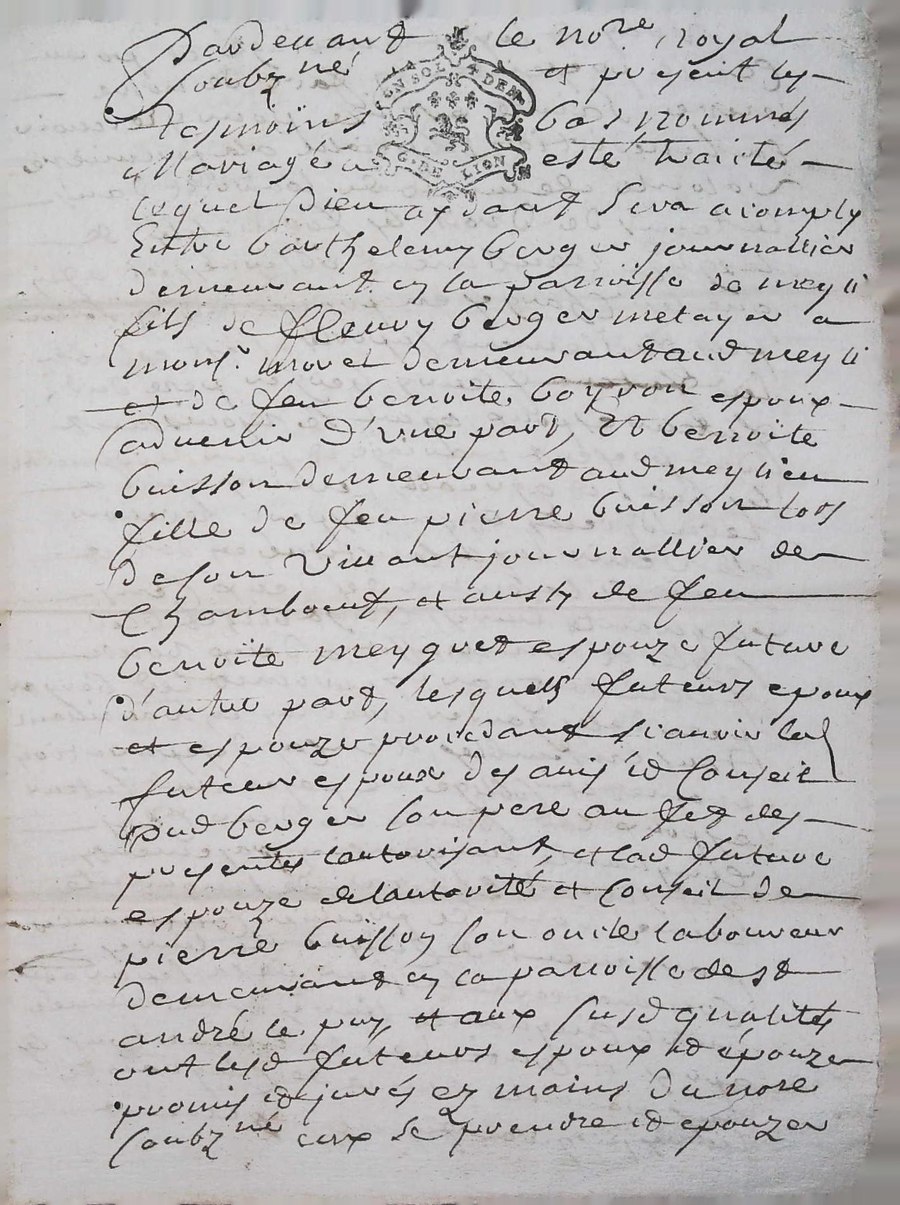 Pardevant le no.re royal
soubzné et presents les
tesmoins bas nommés
UN SOL 4 DEN
G. DE LION
Mariage a esté traicté
lequel Dieu aydant sera acomply
Entre barthelemy berger journallier
demeurant en la parroisse de meyli
fils de fleury berger metayer a
mons.r morel demeurant aud meyli
et de feu benoite boyron espoux
advenir d'une part, Et benoite
buisson demeurant aud meylieu
fille de feu pierre buisson lors
de son vivant journallier de
Chamboeuf, et aussy de feu
benoite meyguet espouze future
d'autre part, lesquels futeurs epoux
et espouze procedant scavoir led
futeur espoux des avis et Conseil
dud berger son pere au fet des
presentes lautorisant, et lad future
espouze de lautorité et Conseil de
pierre buisson son oncle laboureur
demeurant en la parroisse de st
andré le puy, et aux susd qualités
ont lesd futeurs espoux et épouze
promis et jurés ez mains du nore
soubzné eux se prendre et epouzer